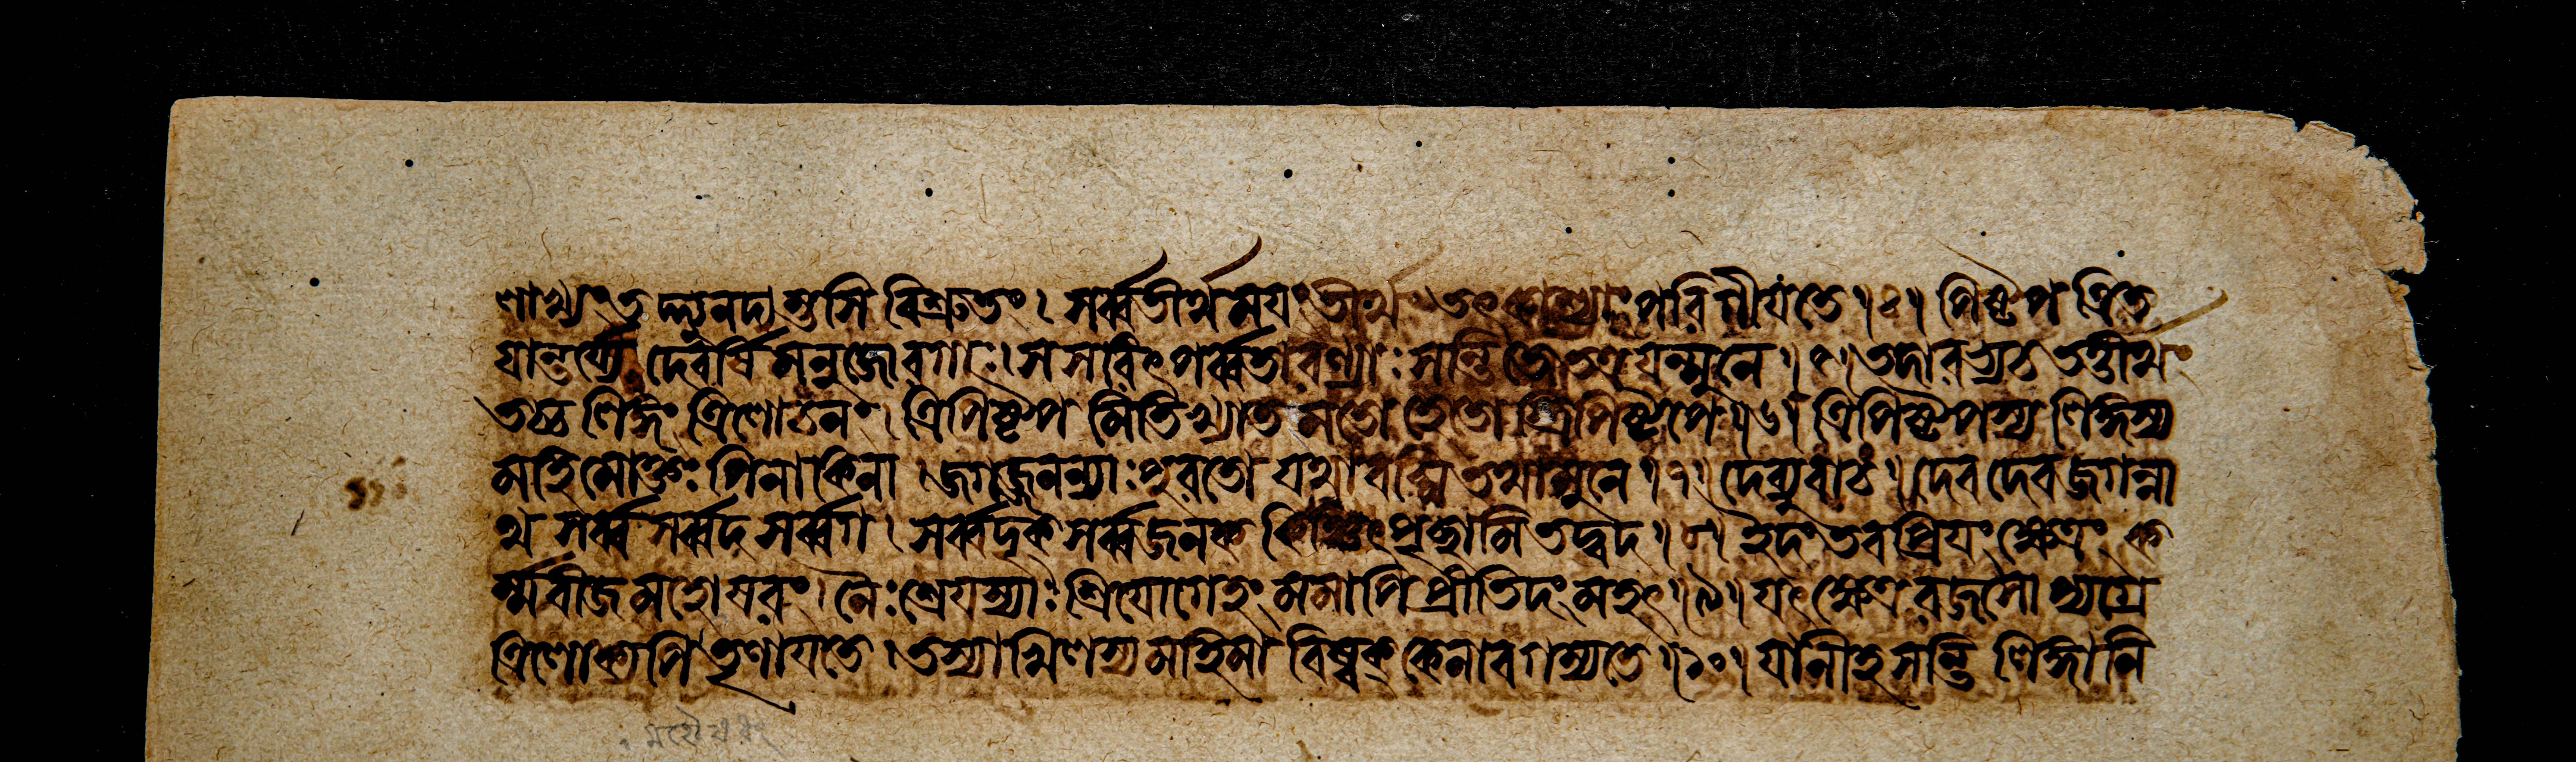 লাখ্যং তদ্দ্যুনদ্যম্ভসি বিশ্রুতং । সর্ব্বতীর্থময়ং তীর্থং তৎ কাশ্যাং পরিগীয়তে ।৪। পিষ্টপ ত্রিত
য়ান্তর্য্যে দেবর্ষি মনুজোরগাঃ । স সরিৎ পর্ব্বতারণ্যাঃ সন্তি তে তত্র যন্মুনে ।৫। তদারভ্য চ তত্তীর্থং
তচ্চ লিঙ্গং ত্রিলোচনং । ত্রিপিষ্টপ মিতি খ্যাত মতো হেতো স্ত্রিপিষ্টপে ।৬। ত্রিপিষ্টপস্য লিঙ্গস্য
মহিমোক্তঃ পিনাকিনা । জগজ্জনন্যাঃ পুরতো যথা বচ্মি তথা মুনে ।৭। দেব্যুবাচ । দেবদেব জগন্না
থ সর্ব্ব সর্ব্বদ সর্ব্বগ । সর্ব্বদৃক্ সর্ব্বজনক কিঞ্চিৎ পৃচ্ছামি তদ্বদ ।৮। ইদং তব প্রিয়ং ক্ষেত্রং ক
র্ম্মবীজ মহৌষরং । নৈঃশ্রেয়স্যাঃ শ্রিয়োগেহং মমাপি প্রীতিদং মহৎ ।৯। যৎ ক্ষেত্র রজসোপ্যগ্রে
ত্রিলোক্যপি তৃণায়তে । তস্যাখিলস্য মহিমা বিষ্বক্ কেনাবগম্যতে ।১০। যানীহ সন্তি লিঙ্গানি